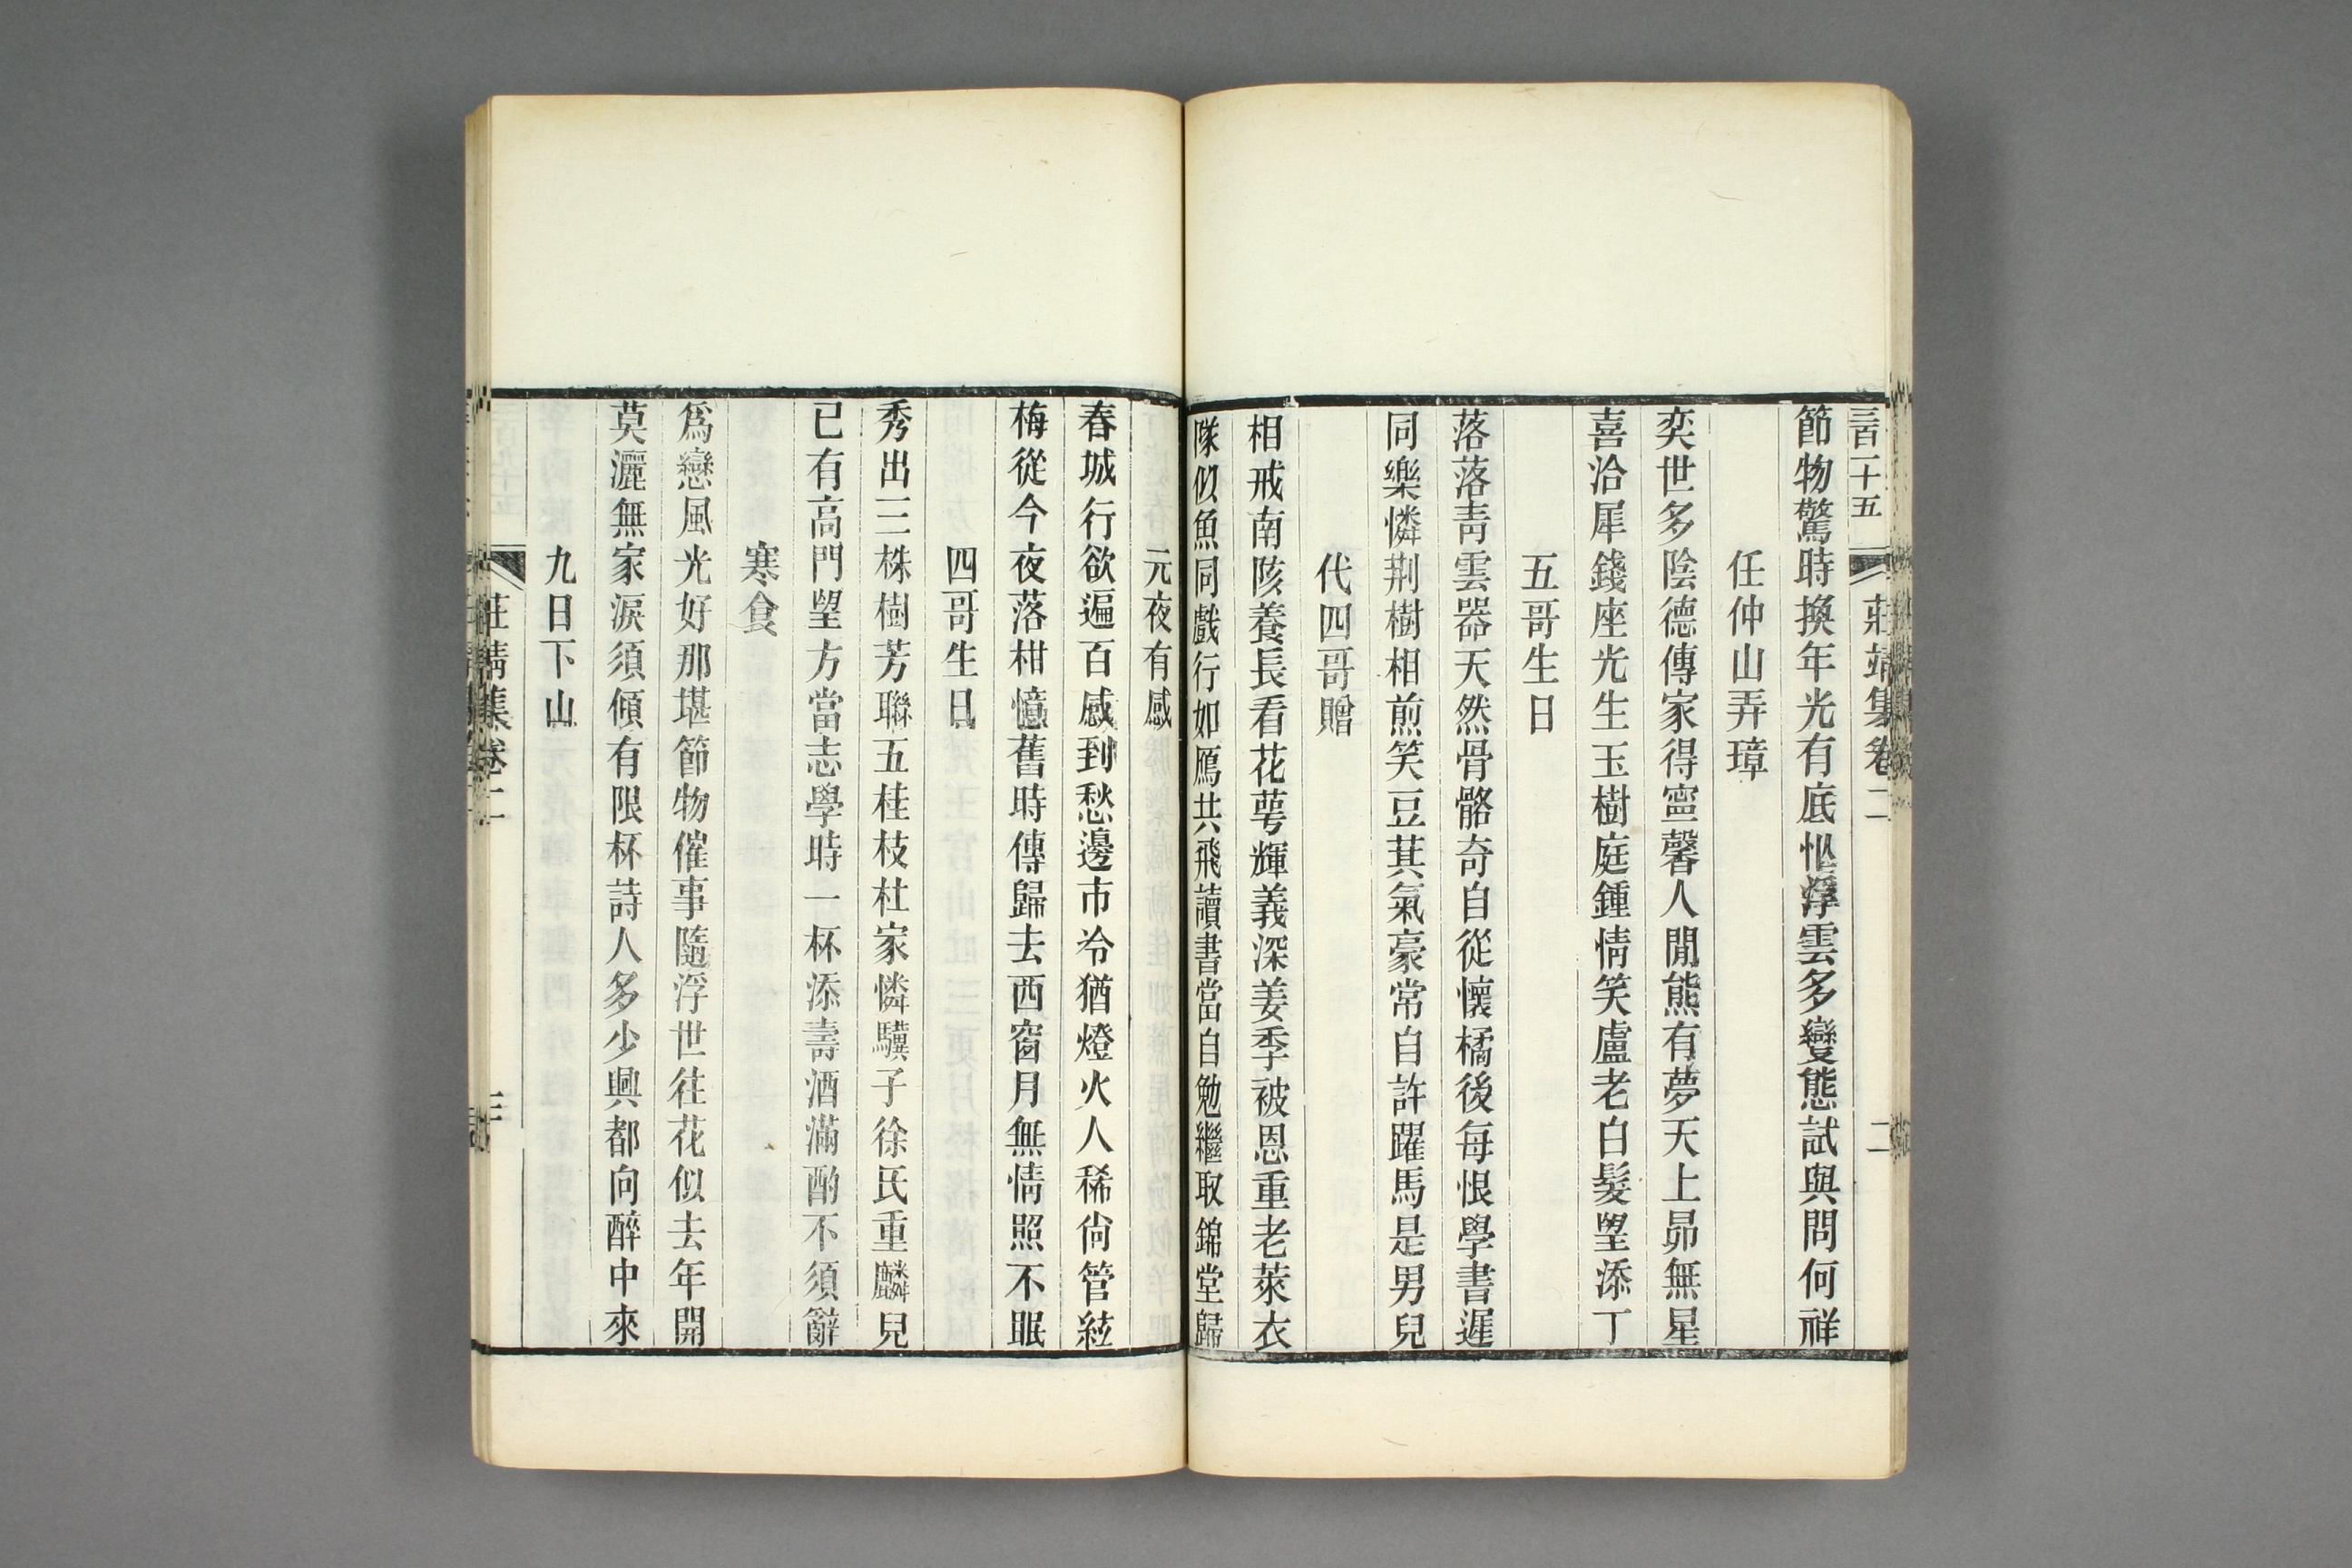 三百二十五 莊靖集卷二 二
節物驚時換年光有底忙浮雲多變態試與問何祥
任仲山弄璋
奕世多陰德傳家得寧馨人間熊有夢天上昴無星
喜洽犀錢座光生玉樹庭鍾情笑盧老白髮望添丁
五哥生日
落落靑雲器天然骨骼奇自從懷橘後每恨學書遲
同樂憐荆樹相煎笑豆萁氣豪常自許躍馬是男兒
代四哥贈
相戒南陔養長看花萼輝義深姜季被恩重老萊衣
隊似魚同戲行如鴈共飛讀書當自勉繼取錦堂歸
元夜有感
春城行欲遍百感到愁邊市冷猶燈火人稀尙管絃
梅從今夜落柑憶舊時傳歸去西窗月無情照不眠
四哥生日
秀出三株樹芳聯五桂枝杜家憐驥子徐氏重麟兒
已有高門望方當志學時一杯添壽酒滿酌不須辭
寒食
爲戀風光好那堪節物催事隨浮世往花似去年開
莫灑無家淚須傾有限杯詩人多少興都向醉中來
九日下山
莊靖集卷二 三